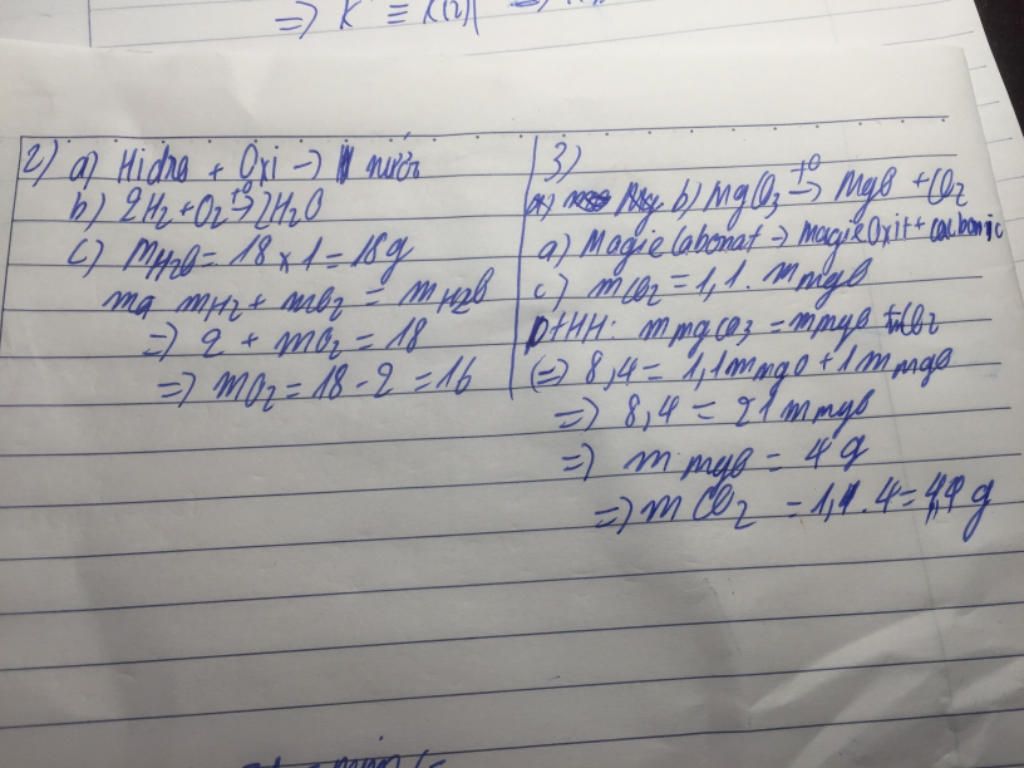 =) K ≡ K(2)
2) a) Hidra + Oxi → nước
b) 2H₂ + O₂ →t⁰ 2H₂O
c) mH₂O = 18 x 1 = 18g
ma mH₂ + mO₂ = mH₂O
=) 2 + mO₂ = 18
=) mO₂ = 18 - 2 = 16
3)
b) MgCO₃ →t⁰ MgO + CO₂
a) Magie Cabonat → magie Oxit + cacbonic
c) mCO₂ = 1,1. mMgO
PtHH: mMgCO₃ = mMgO + CO₂
(=) 8,4 = 1,1mMgO + 1mMgO
=) 8,4 = 21mMgO
=) mMgO = 4g
=) mCO₂ = 1,1.4 = 4,4 g